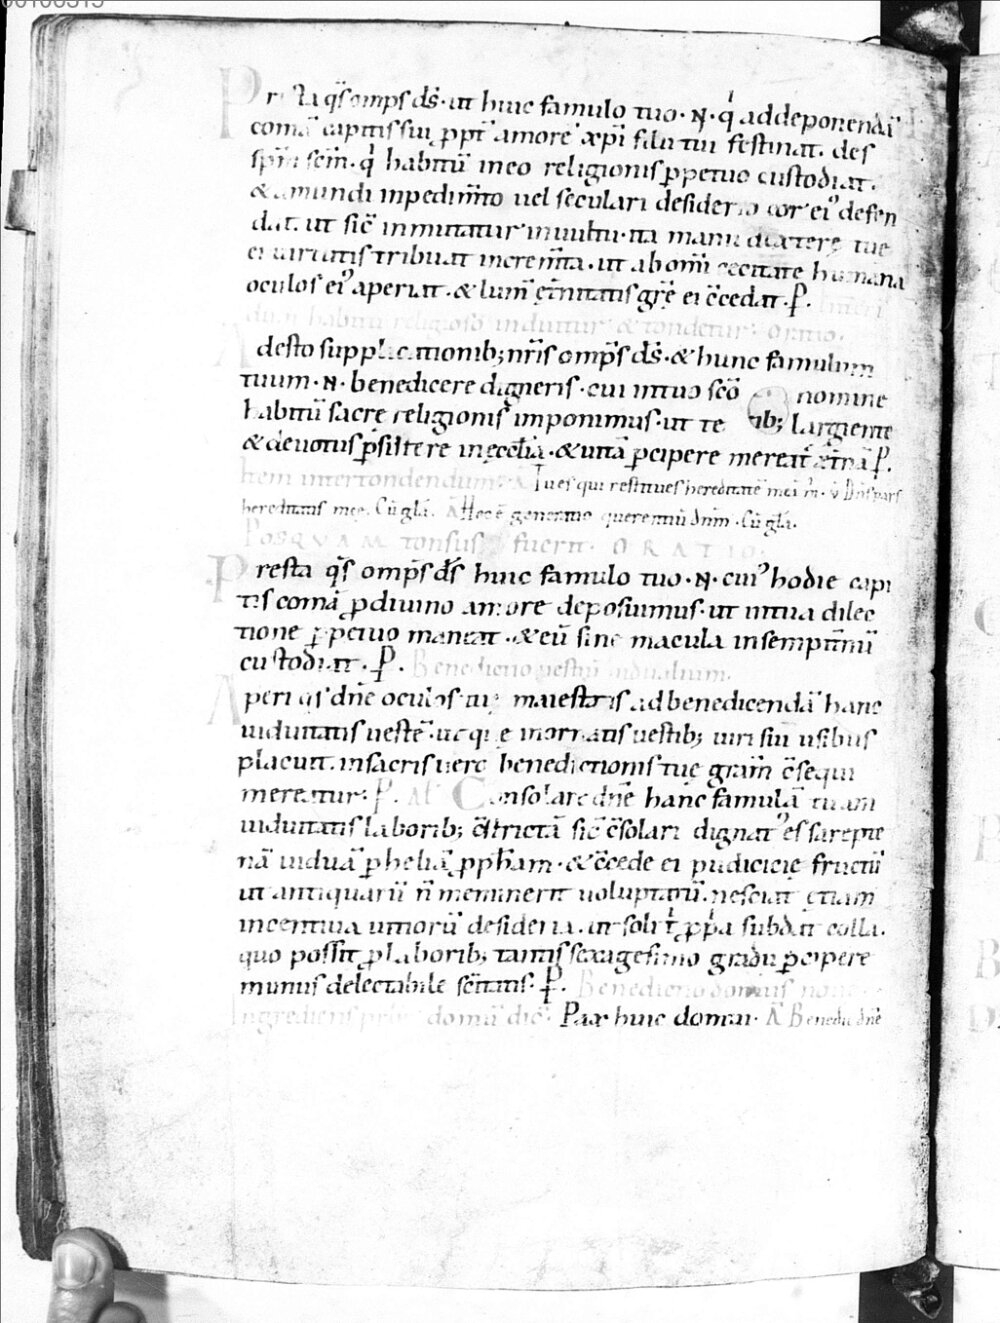 Presta q̄s omp̄s d̄s · ut huic famulo tuo · N · qͥ ad deponendā
comā capitis sui ꝓpt̄ amorē xp̄i filii tui festinat. det
sp̄m sc̄m · qͥ habitū in eo religionis ꝑpetuo custodiat ·
& a mundi inpedim̄to uel seculari desiderio cor ei᾽ defen
dat. ut sic̄ inmutatur in uultu · ita manu dexterę tuę
ei uirtutis tribuat increm̄ta · ut ab om̄i cecitate humana
oculos ei᾽ aperiat · & lum̄ et̄nitatis gr̄ę ei c̄cedat · P̄ ·
habitu religioso induitur & tondetur · oratio ·
Adesto supplicationib; nr̄is omp̄s d̄s · & hunc famulum
tuum · N · benedicere digneris · cui in tuo sc̄o nomine
habitū sacrę religionis imponimus · ut te largiente
ib;
& deuotus ꝑsistere in ęcct̄ia · & uitā ꝑcipere mereat᾽ ęt̄nā P̄ ·
Item inter tondendum · A Tu es qui restitues hereditatē meā m̄ · v̄ Dn̄s pars
hereditatis meę. Cū gła. A Hec ē generatio querentiū dn̄m · Cū gła ·
POSQVAM tonsus fuerit · ORATIO ·
Presta q̄s omp̄s d̄s huic famulo tuo · N · cui᾽ hodie capi
tis comā ꝓ diuino amore deposuimus · ut in tua dilec
tione ꝑpetuo maneat · & eū sine macula in sempit̄nū
custodiat · P̄ · Benedictio uestiū uidualium ·
Aperi q̄s dn̄e oculos tuę maiestatis ad benedicendā hanc
uiduitatis uestē · ut quę in ornatis uestib; uiri sui usibus
placuit. in sacris uero benedictionis tuę gram̄ c̄sequi
mereatur · P̄ · Al Consolare dn̄e hanc famulā tuam
uiduitatis laborib; c̄strictā sic̄ c̄solari dignat᾽ es sarepte
nā uiduā ꝑ heliā ꝓph̄am · & c̄cede ei pudicicię fructū
ut antiquarū n̄ meminerit uoluptatū · nesciat etiam
incentiua uitiorū desideria. ut soli t ꝓpͥa subdat colla ·
quo possit ꝓ laborib; tantis sexagesimo gradu ꝑcipere
munus delectabile sc̄itatis · P̄ · Benedictio domus
Ingrediens domū dic̄ · Pax huic domui · A Benedic dn̄e